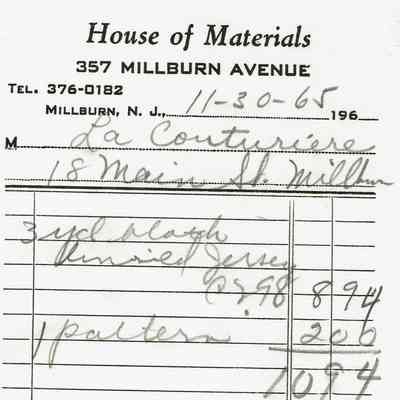 House of Materials
357 MILLBURN AVENUE
TEL. 376-0182
MILLBURN, N. J., 11-30-65 196
M La Couturiere
18 Main St. Millburn
3 yd black
Jersey
@ 2.98 8 94
1 pattern 2 00
10 94